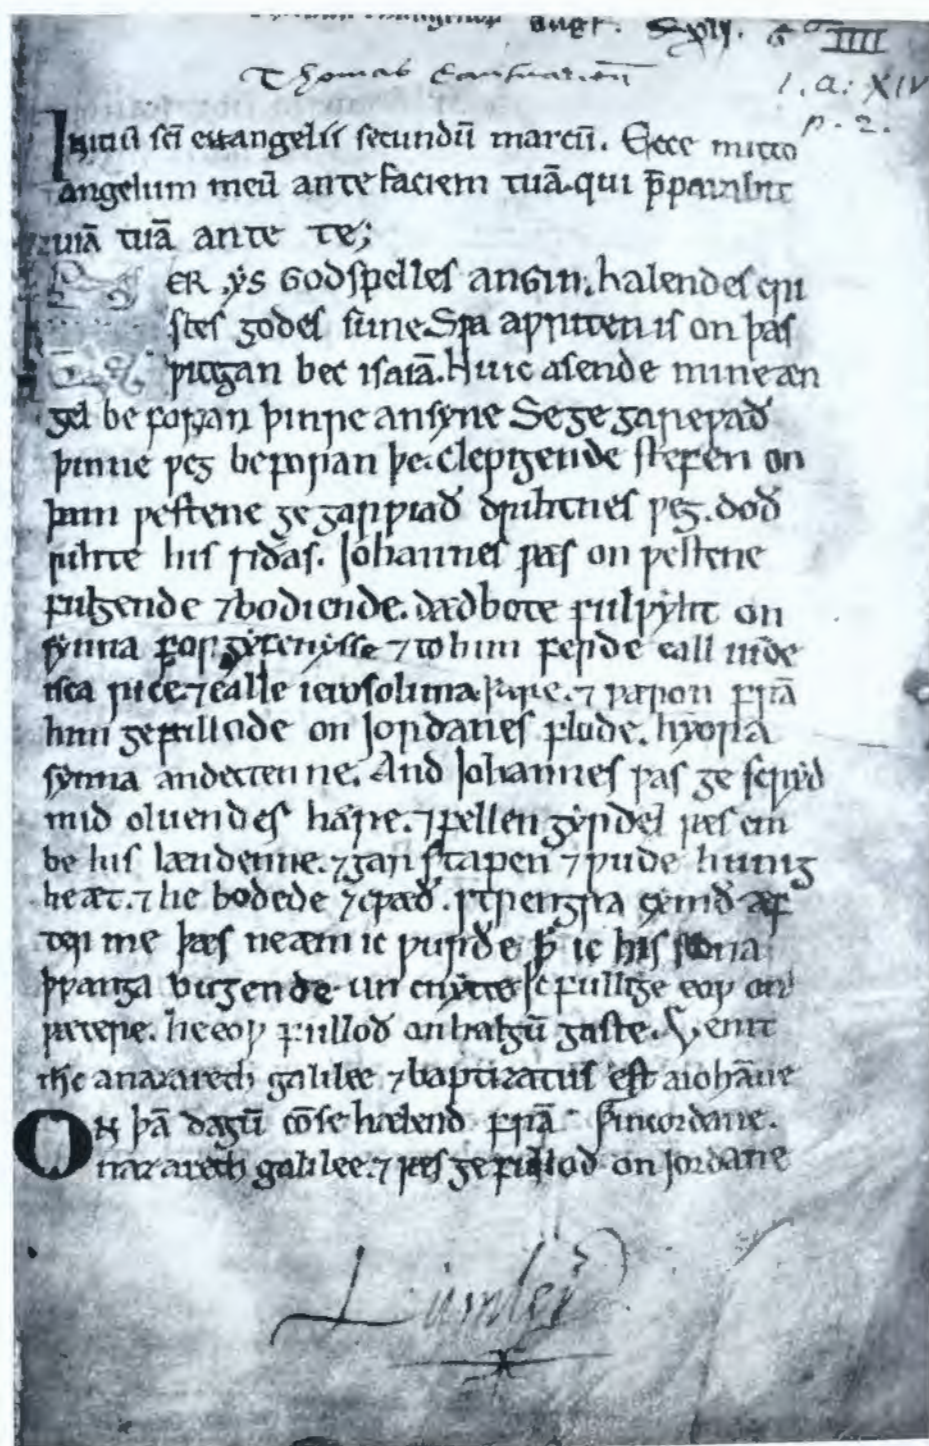 augt. G IIII
Thomas Cantuarien̄
1. A. XIV
p. 2.
Initiū sc̄i euangelii secundū marcū. Ecce mitto
angelum meū ante faciem tuā. qui p̄parabit
uiā tuā ante te;
ER ẏs Godspelles anGin. halendes cri
stes godes sune Sƿa aƿriten is on þas
ƿitegan bec isaiā. Nu ic asende mine æn
gel be foran þinne ansẏne Se ge gareƿað
þinne ƿeg beforan þe. Clepigende stefen on
þam ƿestene ge garƿiað drihtnes ƿeg. doð
rihte his siðas. Johannes ƿas on ƿestene
fulgende ⁊ bodiende. dædbote fulƿẏht on
sẏnna forgẏfenẏsse ⁊ to him ferde eall iude
isca rice. ⁊ ealle ierosolima ƿare. ⁊ ƿæron frā
him gefullode on Jordanes flode. hẏora
sẏnna andettenne. And Johannes ƿas ge scrẏd
mid oluendes hære. ⁊ fellen gẏrdel ƿæs em
be his lændenne. ⁊ garstapen ⁊ ƿude hunig
he æt. ⁊ he bodede ⁊ cƿæð. strengra cẏmð æf
ter me þæs ne æm ic ƿurðe þ̄ ic his scona
þƿanga bugende un cnẏtte Ic fullige eoƿ on
ƿætere. he eoƿ fulloð on halgū gaste. Uenit
ih̄c a nazareth galilee ⁊ baptizatus est a iohāne
ON þā dagū cōm se halend frā in iordane.
nazareth galilee. ⁊ ƿæs ge fullod on Jordane
Lumley